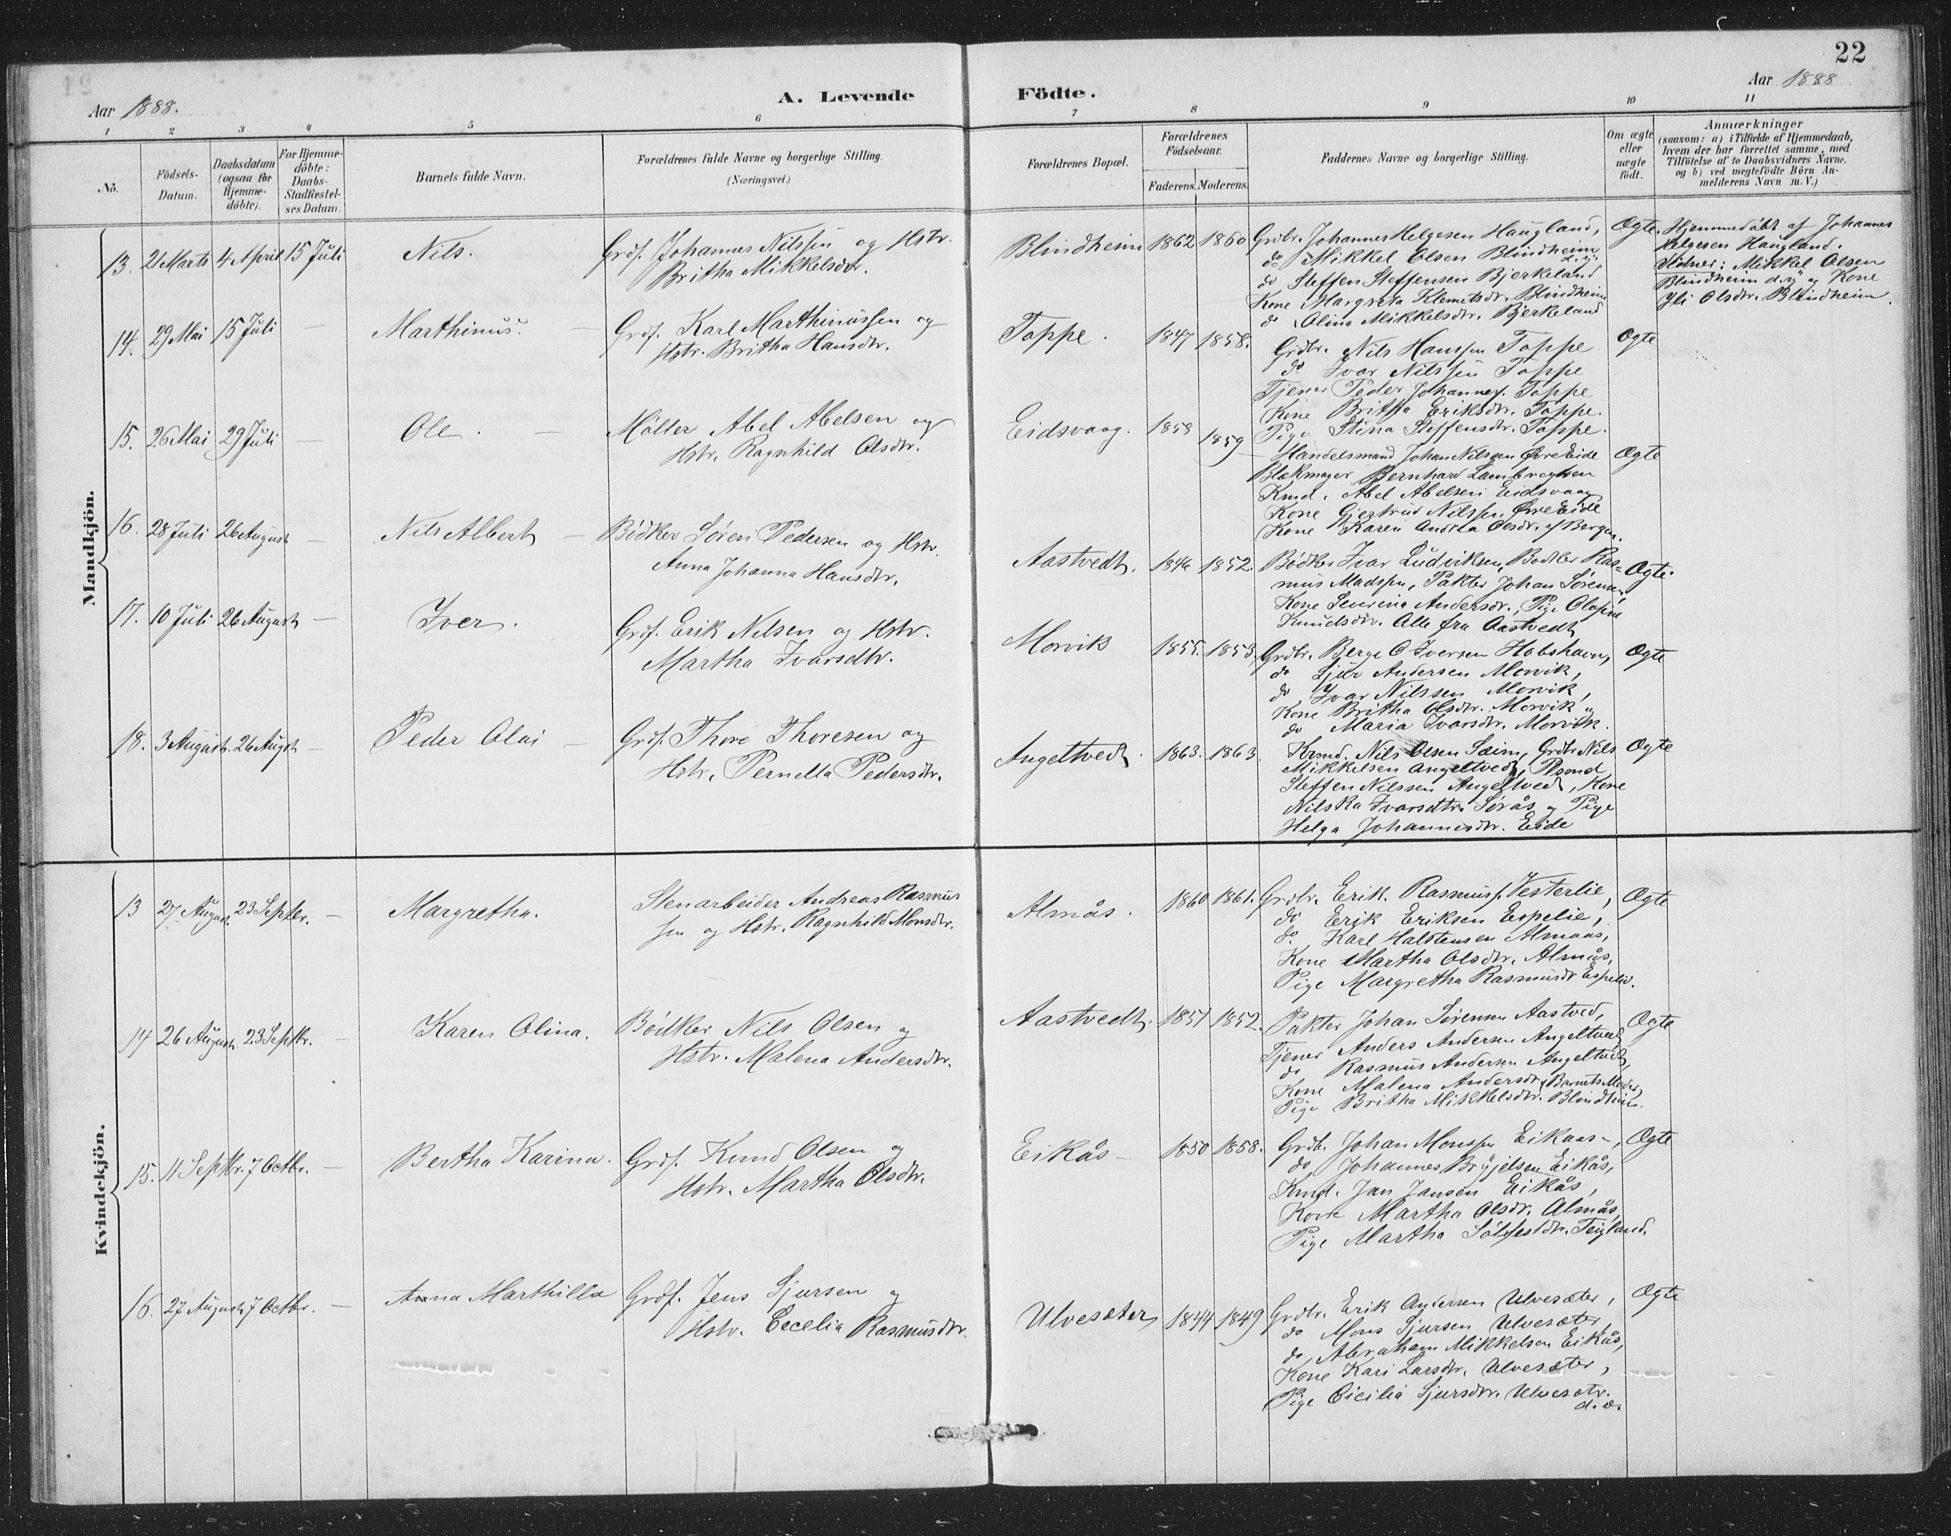 22
Aar 1888.
A. Levende Födte.
Aar 1888
1 2 3 4 5 6 7 8 9 10 11
No.
Födsels-Datum.
Daabsdatum (ogsaa for Hjemme-döbte).
For Hjemme-döbte: Daabs-Stadfæstel-ses Datum.
Barnets fulde Navn.
Forældrenes fulde Navne og borgerlige Stilling.
(Næringsvei.)
Forældrenes Bopæl.
Forældrenes Födselsaar.
Faderens. Moderens.
Faddernes Navne og borgerlige Stilling.
Om ægte eller uægte födt.
Anmærkninger
(saasom: a) i Tilfælde af Hjemmedaab,
hvem der har forrettet samme, med
Tilföielse af to Daabsvidners Navne.
og b) ved uægtefödte Börn An-
melderens Navn m. V.)
Mandkjön.
13. 21 Marts 4 April 15 Juli Nils. Grdf. Johannes Nilssen og Hstr.
Britha Mikkelsdtr.
Blindheim 1862 1860 Grdbr. Johannes Helgesen Haugland,
do Mikkel Olsen Blindheim
do Steffen Steffensen Bjerkeland
Kone Margreta Klemetsdr. Blindheim
do Olina Mikkelsdtr. Bjerkeland
Ægte. Hjemmedöbt af Johannes
Helgesen Haugland.
Mikkel Olsen
Blindheim d.y. og Kone
Olsdtr. Blindheim.
14. 29 Mai 15 Juli — Marthinus. Grdf. Karl Marthinussen og
Hstr. Britha Hansdtr.
Toppe. 1847 1858. Grdbr. Nils Hanssen Toppe
do Ivar Nilssen Toppe
Tjener Peder Johannes. Toppe
Kone Britha Eriksdtr. Toppe.
Pige Stina Steffensdtr. Toppe.
Ægte
15. 26 Mai 29 Juli — Ole. Möller Abel Abelsen og
Hstr. Ragnhild Olsdtr.
Eidsvaag. 1858 1859 Handelsmand Johan Nilssen Øvre Eide
Blekmager Bernhard Lambregtsen
Kmd. Abel Abelsen Eidsvaag
Kone Gjertrud Nilssen Øvre Eide
Kone Karen Andrea Olsdr. af Bergen.
Ægte
16. 28 Juli 26 August — Nils Albert Bödker Sören Pedersen og Hstr.
Anna Johanna Hansdtr.
Aastvedt. 1846 1852. Bödker Ivar Ludviksen, Bödker Ras-
mus Madsen, Pakter Johan Sörensen,
Kone Severina Andersdtr., Pige Olasine
Knudsdtr. Alle fra Aastvedt
Ægte.
17. 10 Juli 26 August — Iver. Grdf. Erik Nilsen og Hstr.
Martha Ivarsdtr.
Morvik 1855. 1853. Grdbr. Berge O Iversen Hobshavn,
do Sjur Andersen Morvik,
do Ivar Nilssen Morvik,
Kone Britha Olsdtr. Morvik og
do Maria Ivarsdtr. Morvik.
Ægte
18. 3 August 26 Augst — Peder Olai Grdf. Thore Thoresen og
Hstr. Pernella Pedersdtr.
Angeltvedt 1863. 1863. Kmd. Nils Olsen Sæim, Grdbr. Nils
Mikkelsen Angeltvedt,
Steffen Nilssen Angeltvedt, Kone
Nilska Ivarsdtr. Sörås og Pige
Helga Johannesdtr. Eide
Ægte
Kvindekjön.
13 27 August 23 Septbr. — Margretha. Stenarbeider Andreas Rasmus
sen og Hstr. Ragnhild Monsdtr.
Almås. 1860 1861. Grdbr. Erik Rasmuss. Vesterlie,
do Erik Eriksen Espelie,
do. Karl Halstensen Almaas,
Kone Martha Olsdtr. Almås,
Pige Margretha Rasmusdr Espelie.
Ægte
14 26 August 23 Septbr. — Karen Olina. Bödker Nils Olsen og
Hstr. Malena Andersdtr.
Aastvedt. 1851 1852. Pakter Johan Sörensen Aastved,
Tjener Anders Andersen Angeltved
do Rasmus Andersen Angeltved,
Kone Malena Andersdr (Barnets Moder)
Pige Britha Mikkelsdtr. Blindheim.
Ægte
15. 11 Septbr. 7 Octbr. — Bertha Karina. Grdf. Knud Olsen og
Hstr. Martha Olsdtr.
Eikås — 1850 1858. Grdb. Johan Monssen Eikaas,
do Johannes Brygjelsen Eikås,
Kmd. Jan Jansen Eikås,
Kone Martha Olsdr. Almås,
Pige Martha Sölfestdtr. Teigland.
Ægte
16. 27 August 7 Octbr. — Anna Marthilla Grdf. Jens Sjursen og
Hstr. Cecelia Rasmusdtr.
Ulvesæter 1844 1849 Grdbr. Erik Andersen Ulvesæter,
do Mons Sjursen Ulvesæter,
do Abraham Mikkelsen Eikås,
Kone Kari Larsdtr. Ulvesæter,
Pige Cicilia Sjursdtr. Ulvesætr.
d.æ.
Ægte